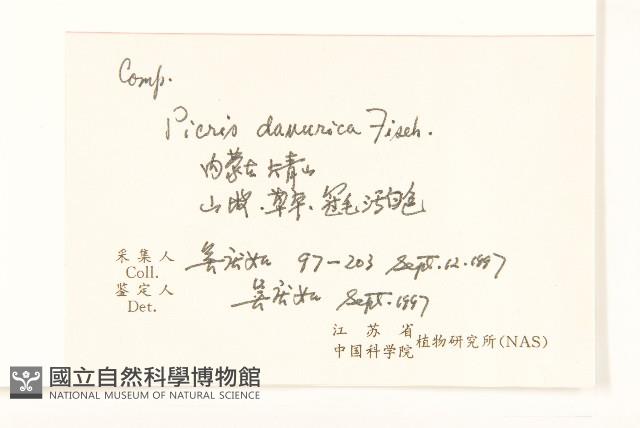 Comp.
Picris davurica Fisch.
内蒙古 大青山
山坡、草丛、冠毛污白色
采集人 吴庆如 97-203 Sept.12.1997
Coll.
鉴定人 吴庆如 Sept.1997
Det.
江苏省
中国科学院 植物研究所(NAS)
國立自然科學博物館
NATIONAL MUSEUM OF NATURAL SCIENCE